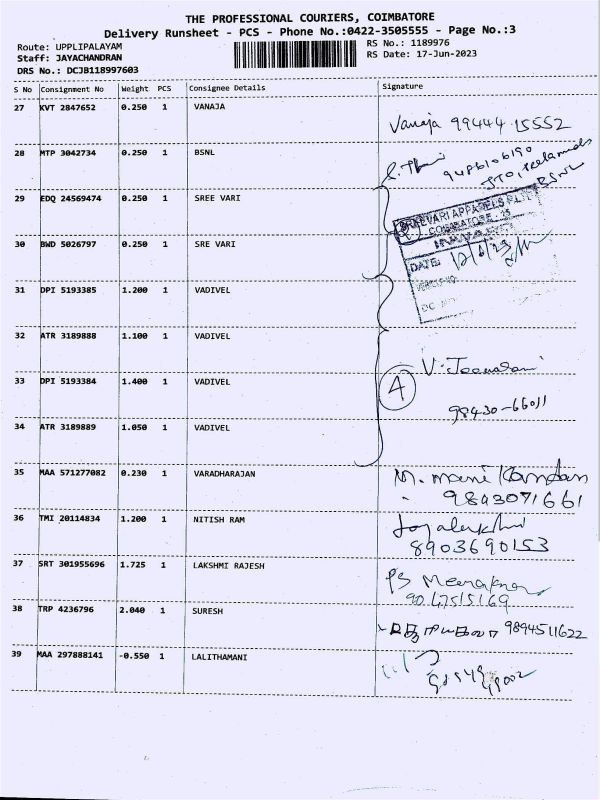 THE PROFESSIONAL COURIERS, COIMBATORE
Delivery Runsheet - PCS - Phone No.:0422-3505555 - Page No.:3
Route: UPPLIPALAYAM
Staff: JAYACHANDRAN
DRS No.: DCJB118997603
RS No.: 1189976
RS Date: 17-Jun-2023
S No Consignment No Weight PCS Consignee Details Signature
27 KVT 2847652 0.250 1 VANAJA Vanaja 99444 15552
28 MTP 3042734 0.250 1 BSNL
BSNL
29 EDQ 24569474 0.250 1 SREE VARI
SREEVARI APPARELS P LTD
COIMBATORE - 15
30 BWD 5026797 0.250 1 SRE VARI
DATE:
31 DPI 5193385 1.200 1 VADIVEL
32 ATR 3189888 1.100 1 VADIVEL
33 DPI 5193384 1.400 1 VADIVEL 4
98430-66011
34 ATR 3189889 1.050 1 VADIVEL
35 MAA 571277082 0.230 1 VARADHARAJAN M. mani Kandan
9843071661
36 TMI 20114834 1.200 1 NITISH RAM
8903690153
37 SRT 301955696 1.725 1 LAKSHMI RAJESH
9047515169
38 TRP 4236796 2.040 1 SURESH 9894511622
39 MAA 297888141 -0.550 1 LALITHAMANI